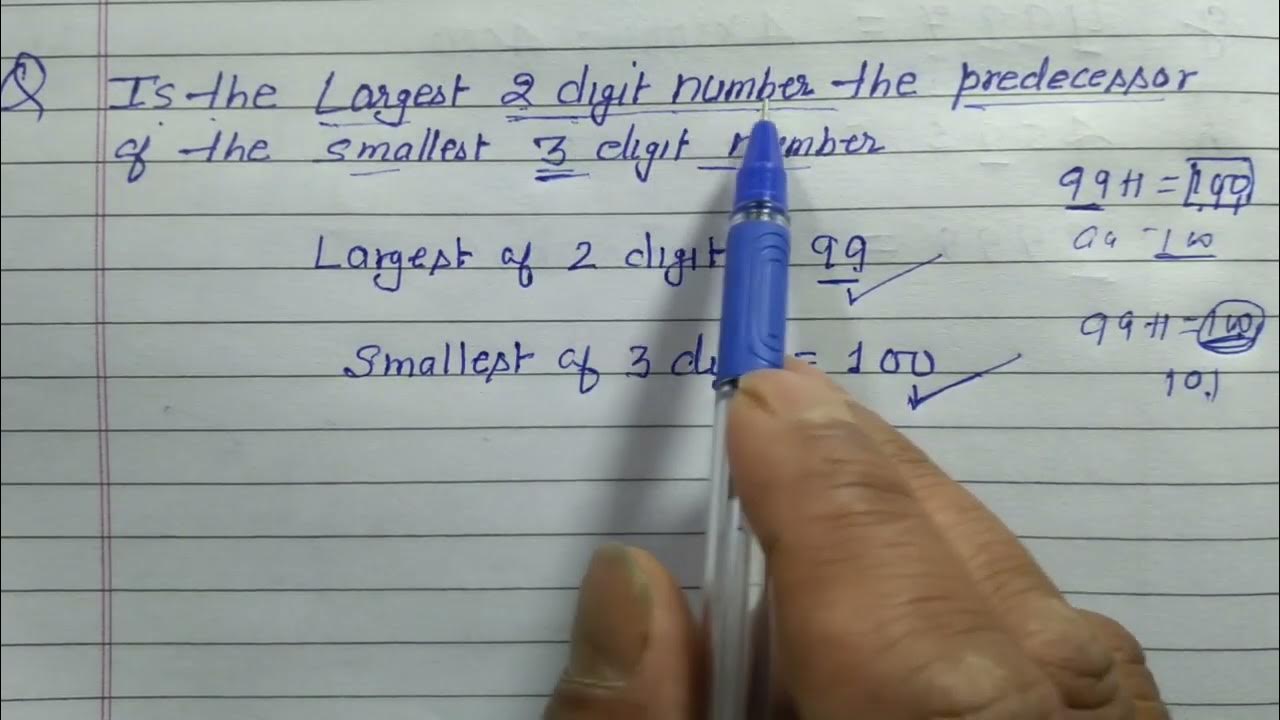 Q Is the Largest 2 digit number the predecessor
of the smallest 3 digit number
99+1 = 100
99 - 100
Largest of 2 digit 99
99+1 = 100
Smallest of 3 = 100
101